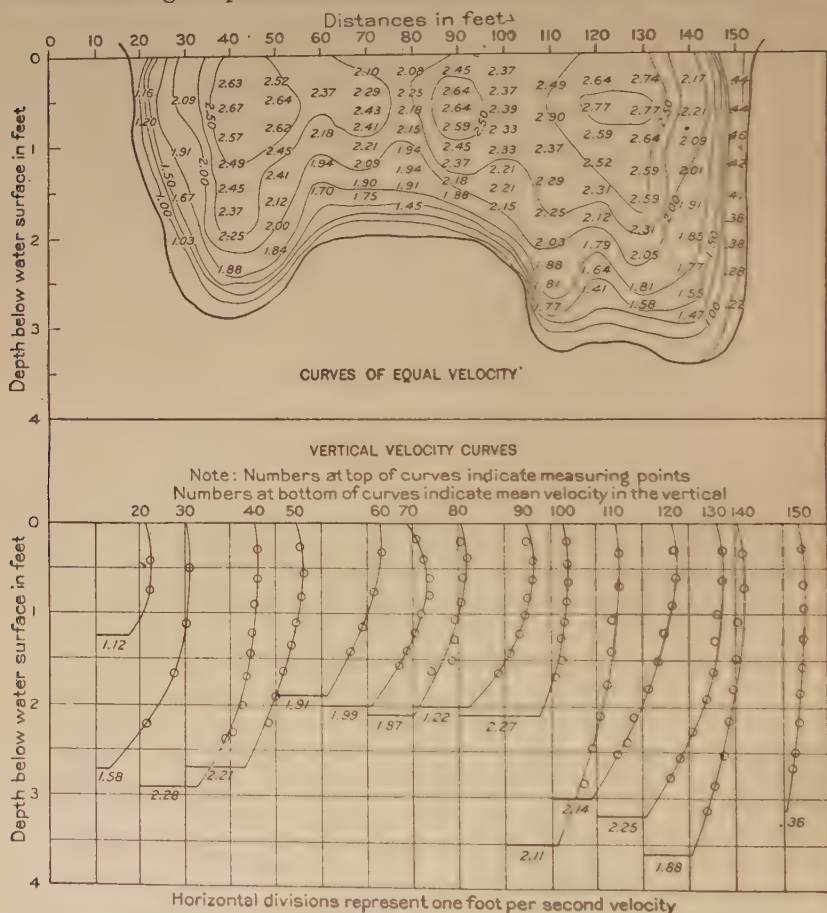 Distances in feet
0 10 20 30 40 50 60 70 80 90 100 110 120 130 140 150
Depth below water surface in feet
0
1
2
3
4
2.63 2.52 2.10 2.08 2.45 2.37 2.49 2.64 2.74 2.17 .44
1.16 2.09 2.67 2.50 2.64 2.37 2.29 2.25 2.64 2.37 2.77 2.77 2.50 2.21 .44
1.20 2.57 2.62 2.18 2.43 2.18 2.64 2.39 2.90
2.41 2.15 2.59 2.50 2.33 2.59 2.64 2.09 .46
1.91 2.00 2.49 2.45 1.94 2.21 1.94 2.45 2.33 2.37 2.52 2.59 2.01 .42
1.50 1.67 2.45 2.41 1.70 2.09 1.94 2.37 2.21 2.29 2.31 2.59 2.00 1.91 .41
1.00 2.37 2.12 1.90 1.91 2.18 2.21 2.25 2.12 2.31 .38
1.03 2.25 2.00 1.75 1.45 1.88 2.15 2.03 1.79 2.05 1.85 1.50 .38
1.88 1.84 1.88 1.64 1.81 1.77 .28
1.81 1.41 1.58 1.55 .22
1.77 1.47 1.00
CURVES OF EQUAL VELOCITY
VERTICAL VELOCITY CURVES
Note: Numbers at top of curves indicate measuring points
Numbers at bottom of curves indicate mean velocity in the vertical
20 30 40 50 63 70 80 90 100 110 120 130 140 150
Depth below water surface in feet
0
1
2
3
4
1.12
1.58
2.28
2.21
1.91
1.99
1.97
1.22
2.27
2.11
2.14
2.25
1.88
.36
Horizontal divisions represent one foot per second velocity